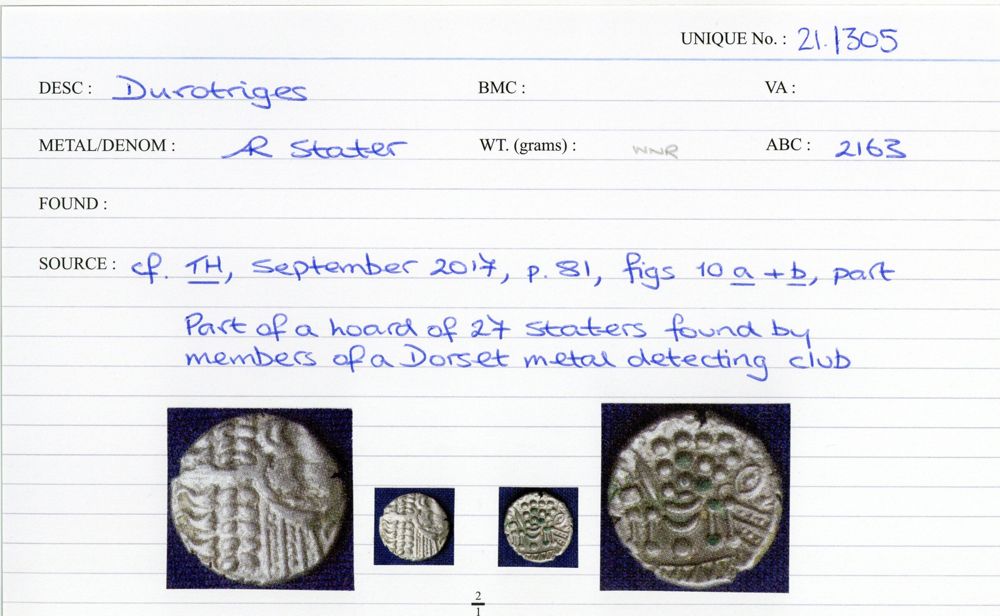 UNIQUE No. : 21.1305
DESC : Durotriges BMC : VA :
METAL/DENOM : AR Stater WT. (grams) : WNR ABC : 2163
FOUND :
SOURCE : cf. TH, September 2017, p. 81, figs 10 a + b, part
Part of a hoard of 27 staters found by
members of a Dorset metal detecting club
2
1